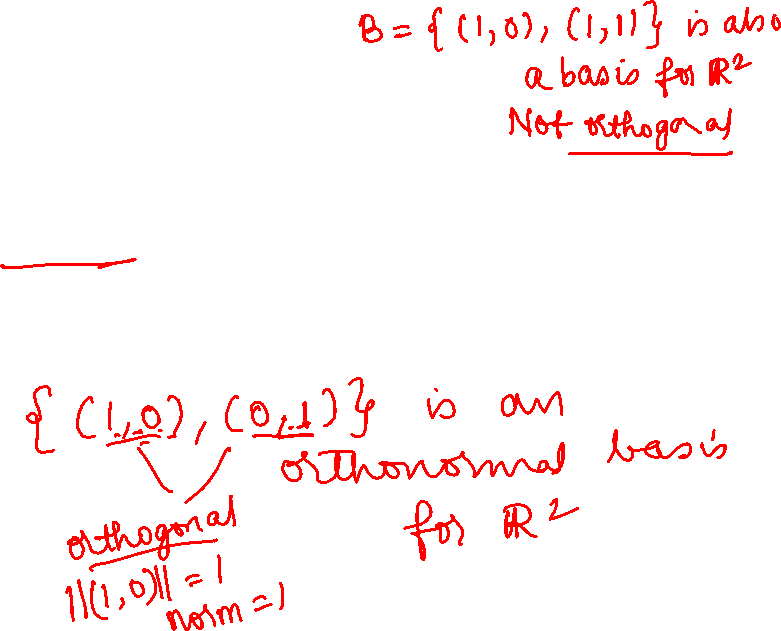 B = { (1,0), (1,1)} is also
a basis for ℝ²
Not orthogonal
{ (1,0), (0,1)} is an
orthonormal basis
for ℝ²
orthogonal
||(1,0)|| = 1
norm = 1